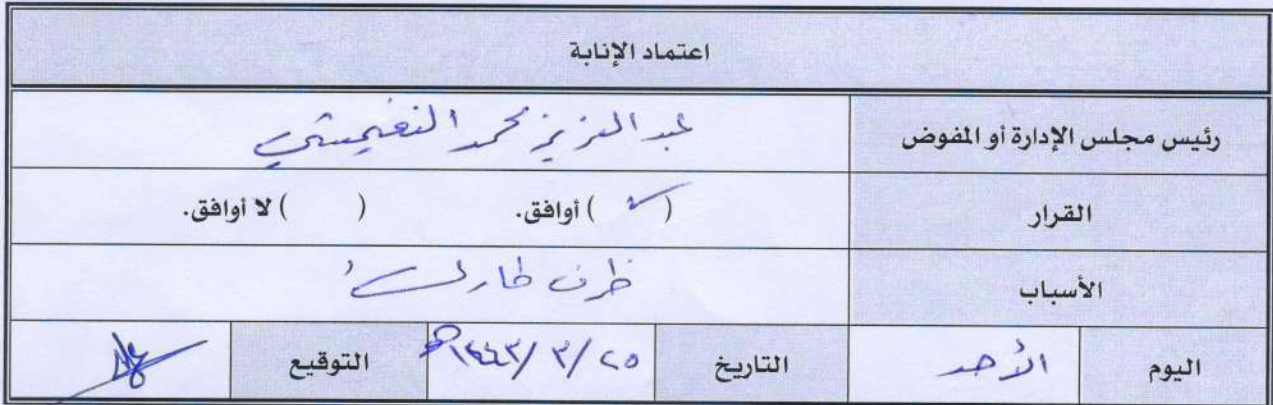 اعتماد الإنابة
رئيس مجلس الإدارة أو المفوض عبد العزيز محمد النغيمشي
القرار ( ✓ ) أوافق. ( ) لا أوافق.
الأسباب ظرف طارئ
اليوم الأحد التاريخ ٢٥/ ٣/ ١٤٤٣هـ التوقيع